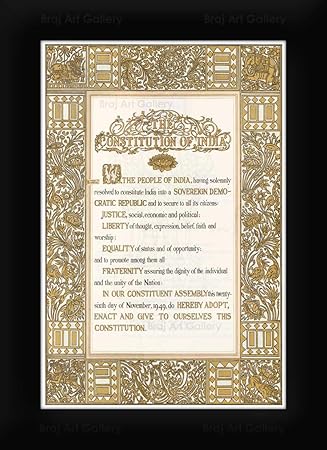 Braj Art Gallery Braj Art Gallery
THE
CONSTITUTION OF INDIA
WE, THE PEOPLE OF INDIA, having solemnly
resolved to constitute India into a SOVEREIGN DEMO-
CRATIC REPUBLIC and to secure to all its citizens:
JUSTICE, social, economic and political;
LIBERTY of thought, expression, belief, faith and
worship;
EQUALITY of status and of opportunity;
and to promote among them all
FRATERNITY assuring the dignity of the individual
and the unity of the Nation;
IN OUR CONSTITUENT ASSEMBLY this twenty-
sixth day of November, 1949, do HEREBY ADOPT,
ENACT AND GIVE TO OURSELVES THIS
CONSTITUTION.
Braj Art Gallery
Braj Art Gallery Braj Art Gallery